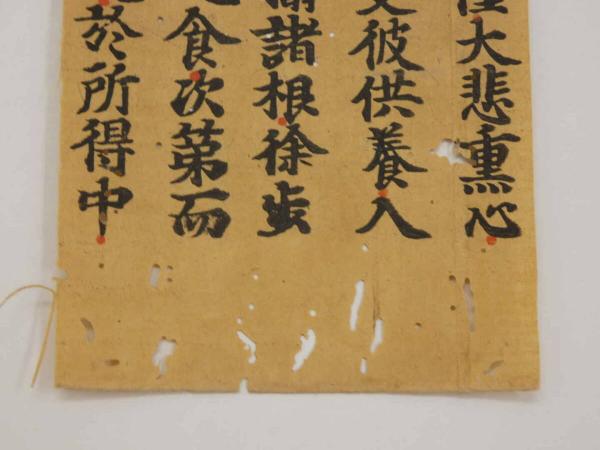 大悲熏心
彼供養入
諸根徐步
食次第而
於所得中